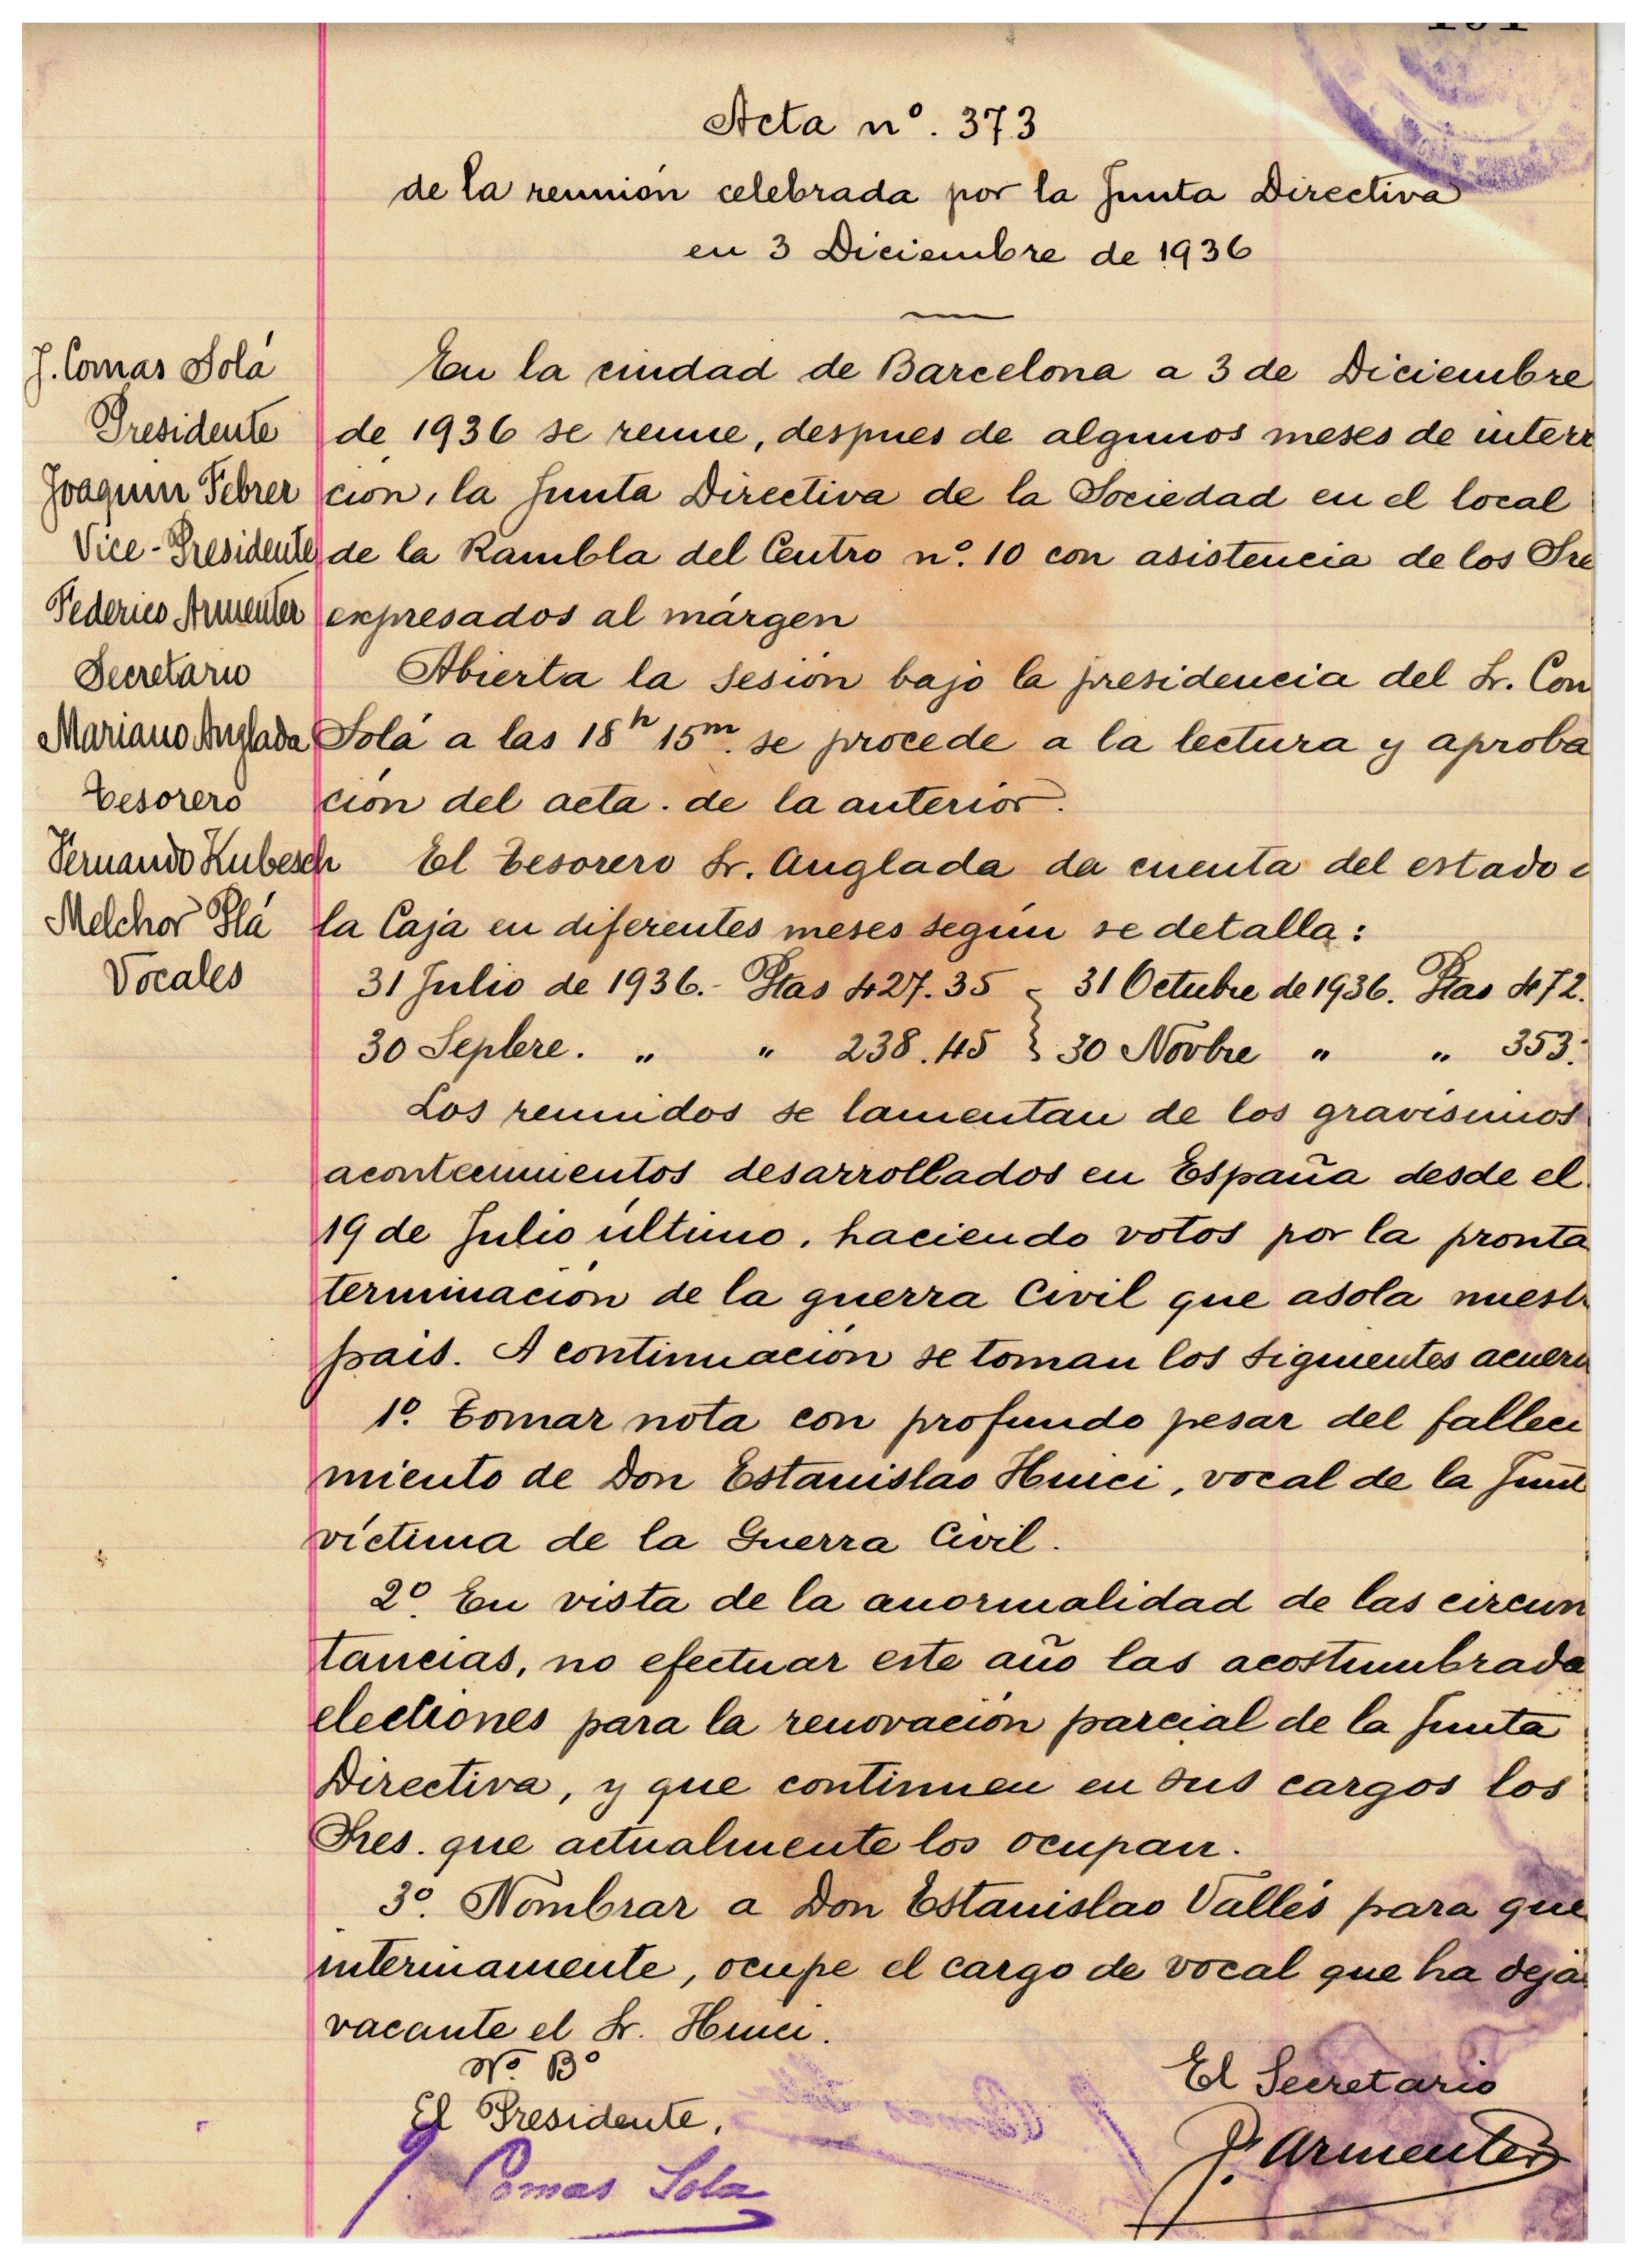 Acta nº. 373
de la reunión celebrada por la Junta Directiva
en 3 Diciembre de 1936
J. Comas Solá
Presidente
Joaquin Febrer
Vice-Presidente
Federico Armenter
Secretario
Mariano Anglada
Tesorero
Fernando Kubesch
Melchor Plá
Vocales
En la ciudad de Barcelona a 3 de Diciembre
de 1936 se reune, despues de algunos meses de interr
ción, la Junta Directiva de la Sociedad en el local
de la Rambla del Centro nº. 10 con asistencia de los Sre
expresados al márgen
Abierta la sesión bajo la presidencia del Sr. Com
Solá a las 18h 15m. se procede a la lectura y aproba
ción del acta. de la anterior.
El Tesorero Sr. Anglada da cuenta del estado
la Caja en diferentes meses según se detalla:
31 Julio de 1936.- Ptas 427.35 } 31 Octubre de 1936. Ptas 472.
30 Septbre. " " 238.45 } 30 Novbre " " 353.
Los reunidos se lamentan de los gravísimos
acontecimientos desarrollados en España desde el
19 de Julio último, haciendo votos por la pronta
terminación de la guerra Civil que asola nuestr
pais. A continuación se toman los siguientes acuerd
1º. Tomar nota con profundo pesar del falleci
miento de Don Estanislao Huici, vocal de la Junt
víctima de la Guerra Civil.
2º. En vista de la anormalidad de las circun
tancias, no efectuar este año las acostumbrada
elecciones para la renovación parcial de la Junta
Directiva, y que continuen en sus cargos los
Sres. que actualmente los ocupan.
3º. Nombrar a Don Estanislao Vallés para que
interinamente, ocupe el cargo de vocal que ha deja
vacante el Sr. Huici.
Vº. Bº
El Presidente,
J. Comas Sola
El Secretario
F. Armenter